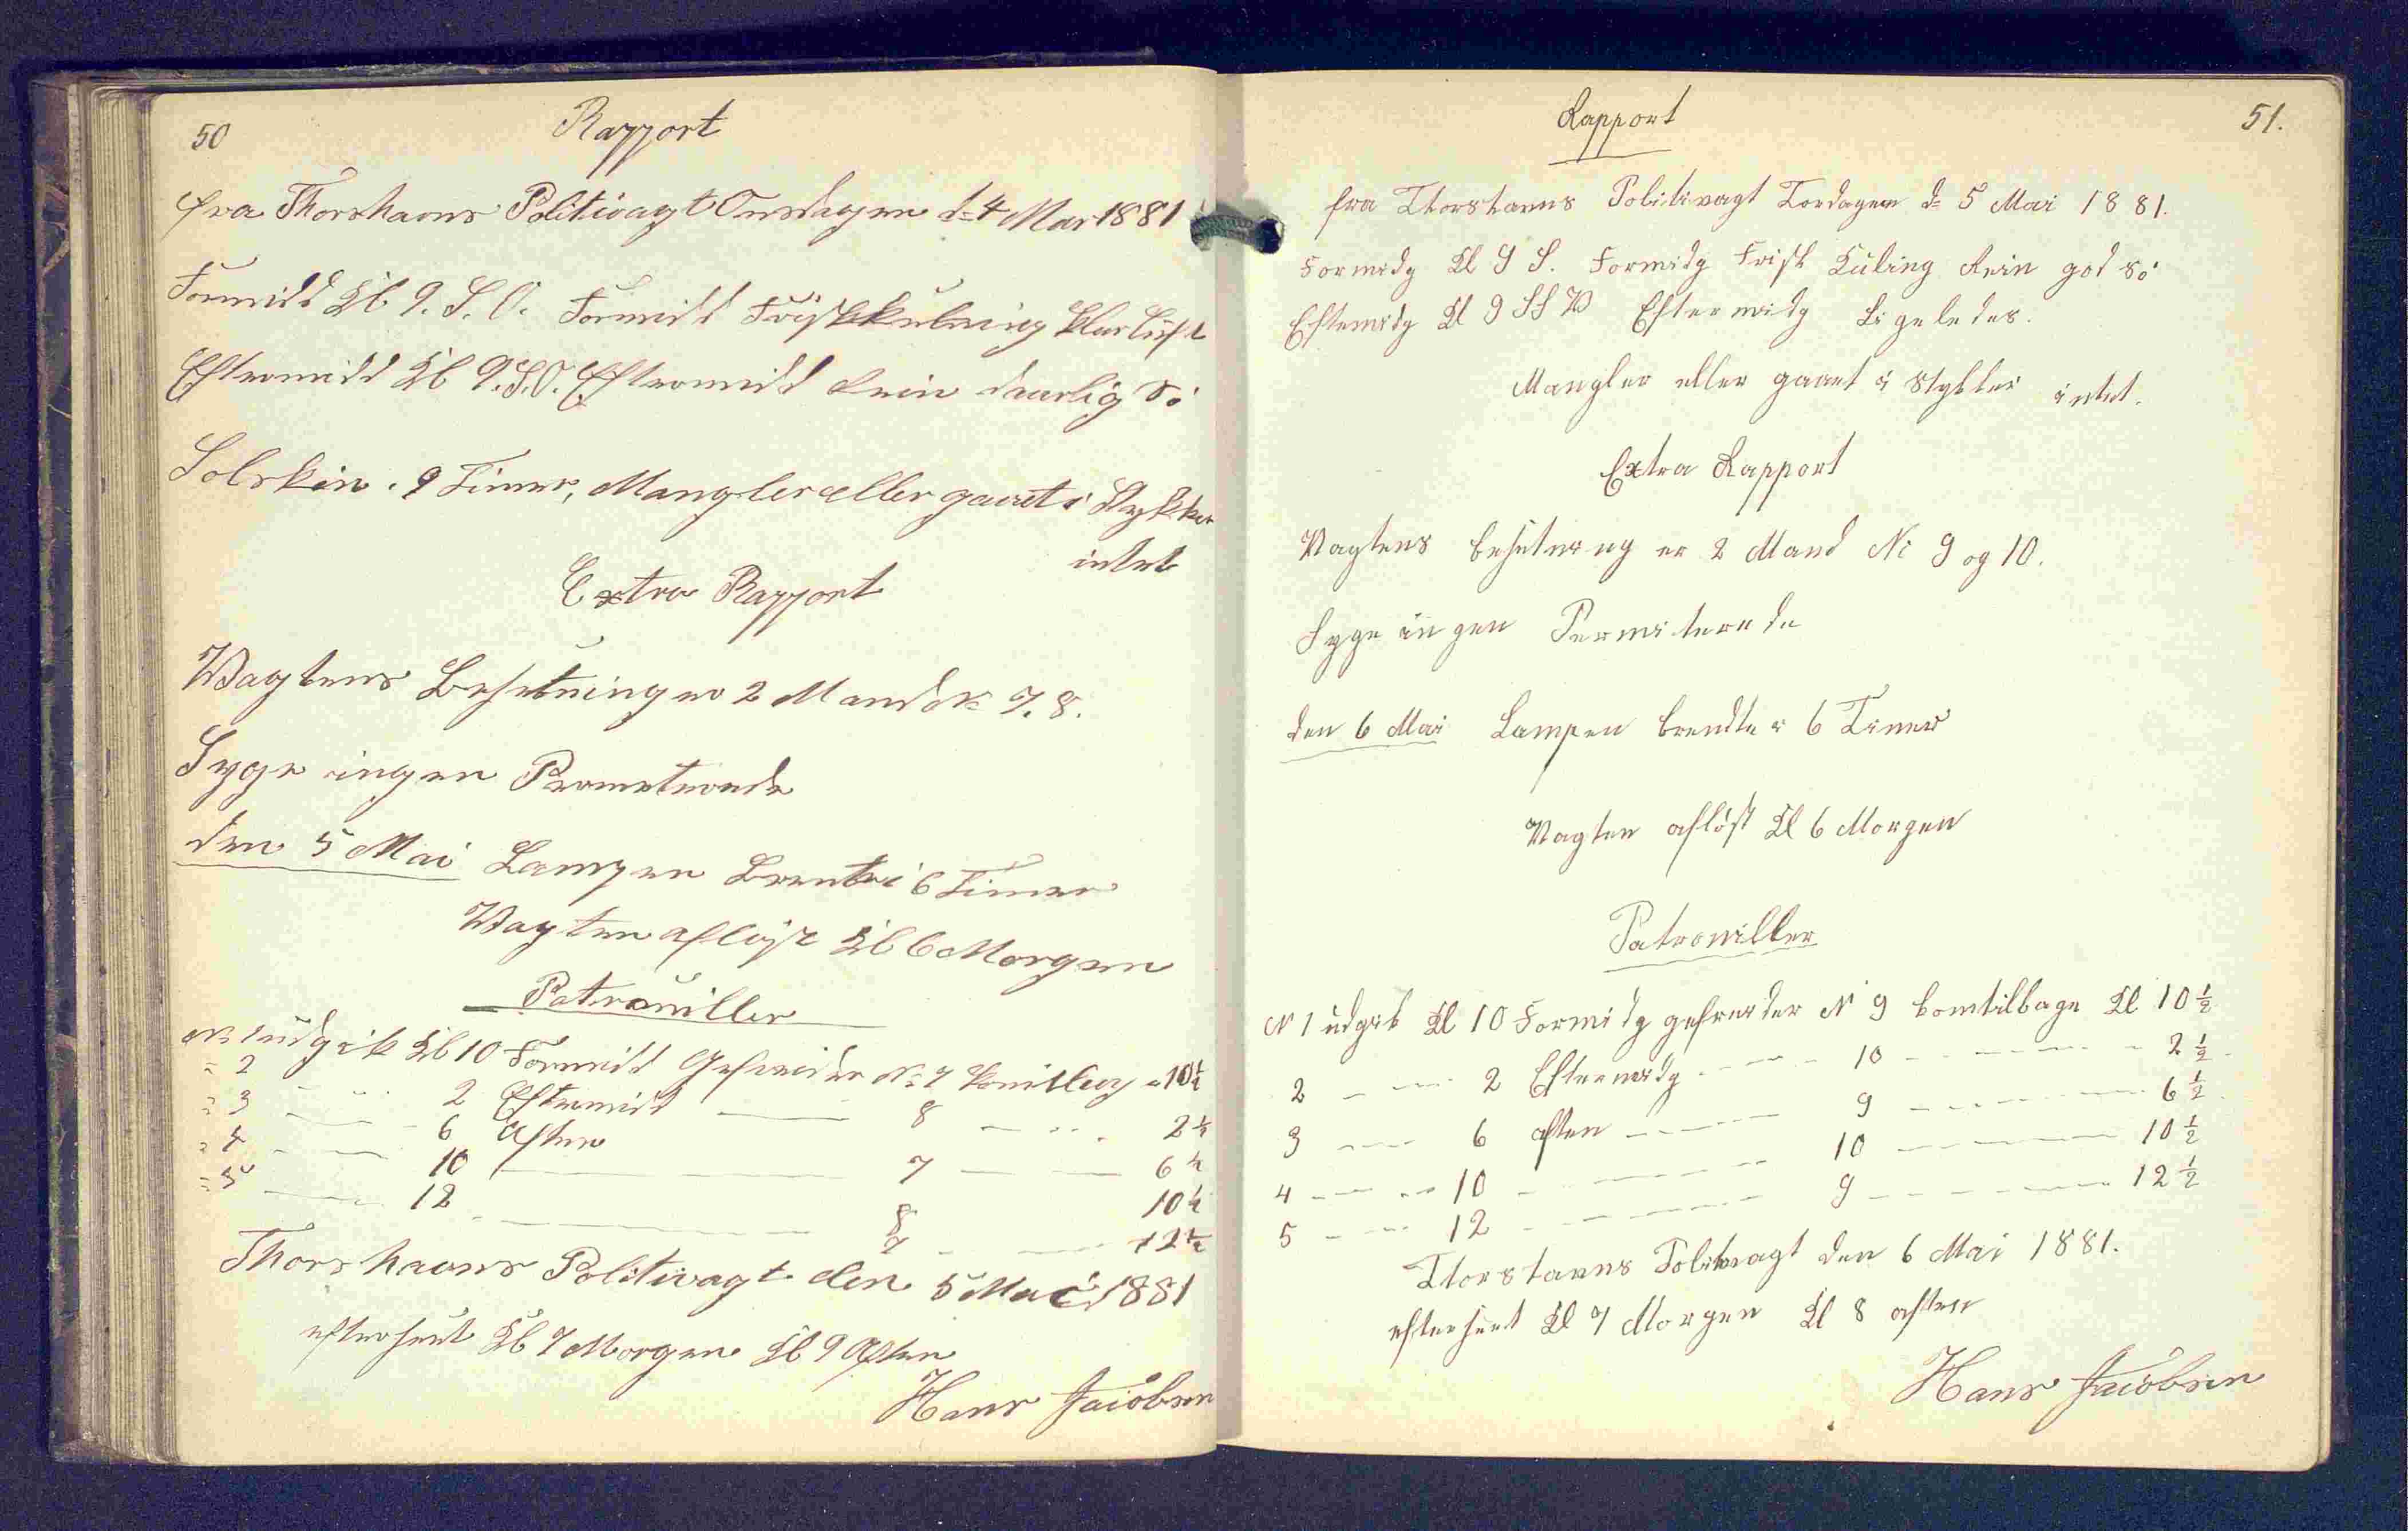 50
Rapport
fra Thorshavns Politivagt Onsdagen d= 4 Mai 1881
Formidd Kl 9. S. O. Formidd Friskkuling klar Luft
Eftermidd Kl 9. S. O. Eftermidd Rein daarlig Sö
Solskin. 9 Timer, Mangler eller gaaet i Stykker
intet
Extra Rapport
Wagtens Besetning er 2 Mand N: 7. 8.
Syge ingen Permeterende
den 5 Mai Lampen brentte i 6 Timer
Wagten aflöst Kl 6 Morgen
Patrouiller
N: 1 udgik Kl 10 Formidd Gefreider N: 7 komtilbag = 10½
= 2 2 Eftermidd 8 2½
= 3 6 Aften 7 6½
= 4 10 8 10½
= 5 12 7 12½
Thorshavns Politivagt den 5 Mai 1881
efterseet Kl 7 Morgen Kl 9 Aften
Hans Jacobsen
51.
Rapport
fra Thorshavns Politivagt Tordagen d= 5 Mai 1881.
Formidg Kl 9 S. Formidg Frisk Kuling Rein god Sö
Eftemidg Kl 9 SSW Eftermidg Ligeledes.
Mangler eller gaaet i Stykker intet.
Extra Rapport
Vagtens besetning er 2 Mand N: 9 og 10.
Syge ingen Permiterede
den 6 Mai Lampen brendte i 6 Timer
Vagten aflöst Kl 6 Morgen
Patrouiller
N 1 udgik Kl 10 Formidg gefreider N 9 komtilbage Kl 10½
2 2 Eftermidg 10 2½
3 6 aften 9 6½
4 10 10 10½
5 12 9 12½
Thorshavns Politivagt den 6 Mai 1881.
efterseet Kl 7 Morgen Kl 8 aften
Hans Jacobsen